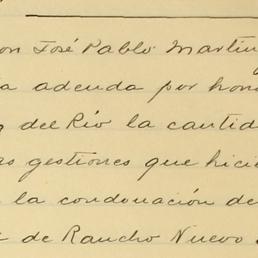 on José Pablo Martín
a adenda por hono
del Río la cantid
as gestiones que hicie
la condonación de
de Rancho Nuevo